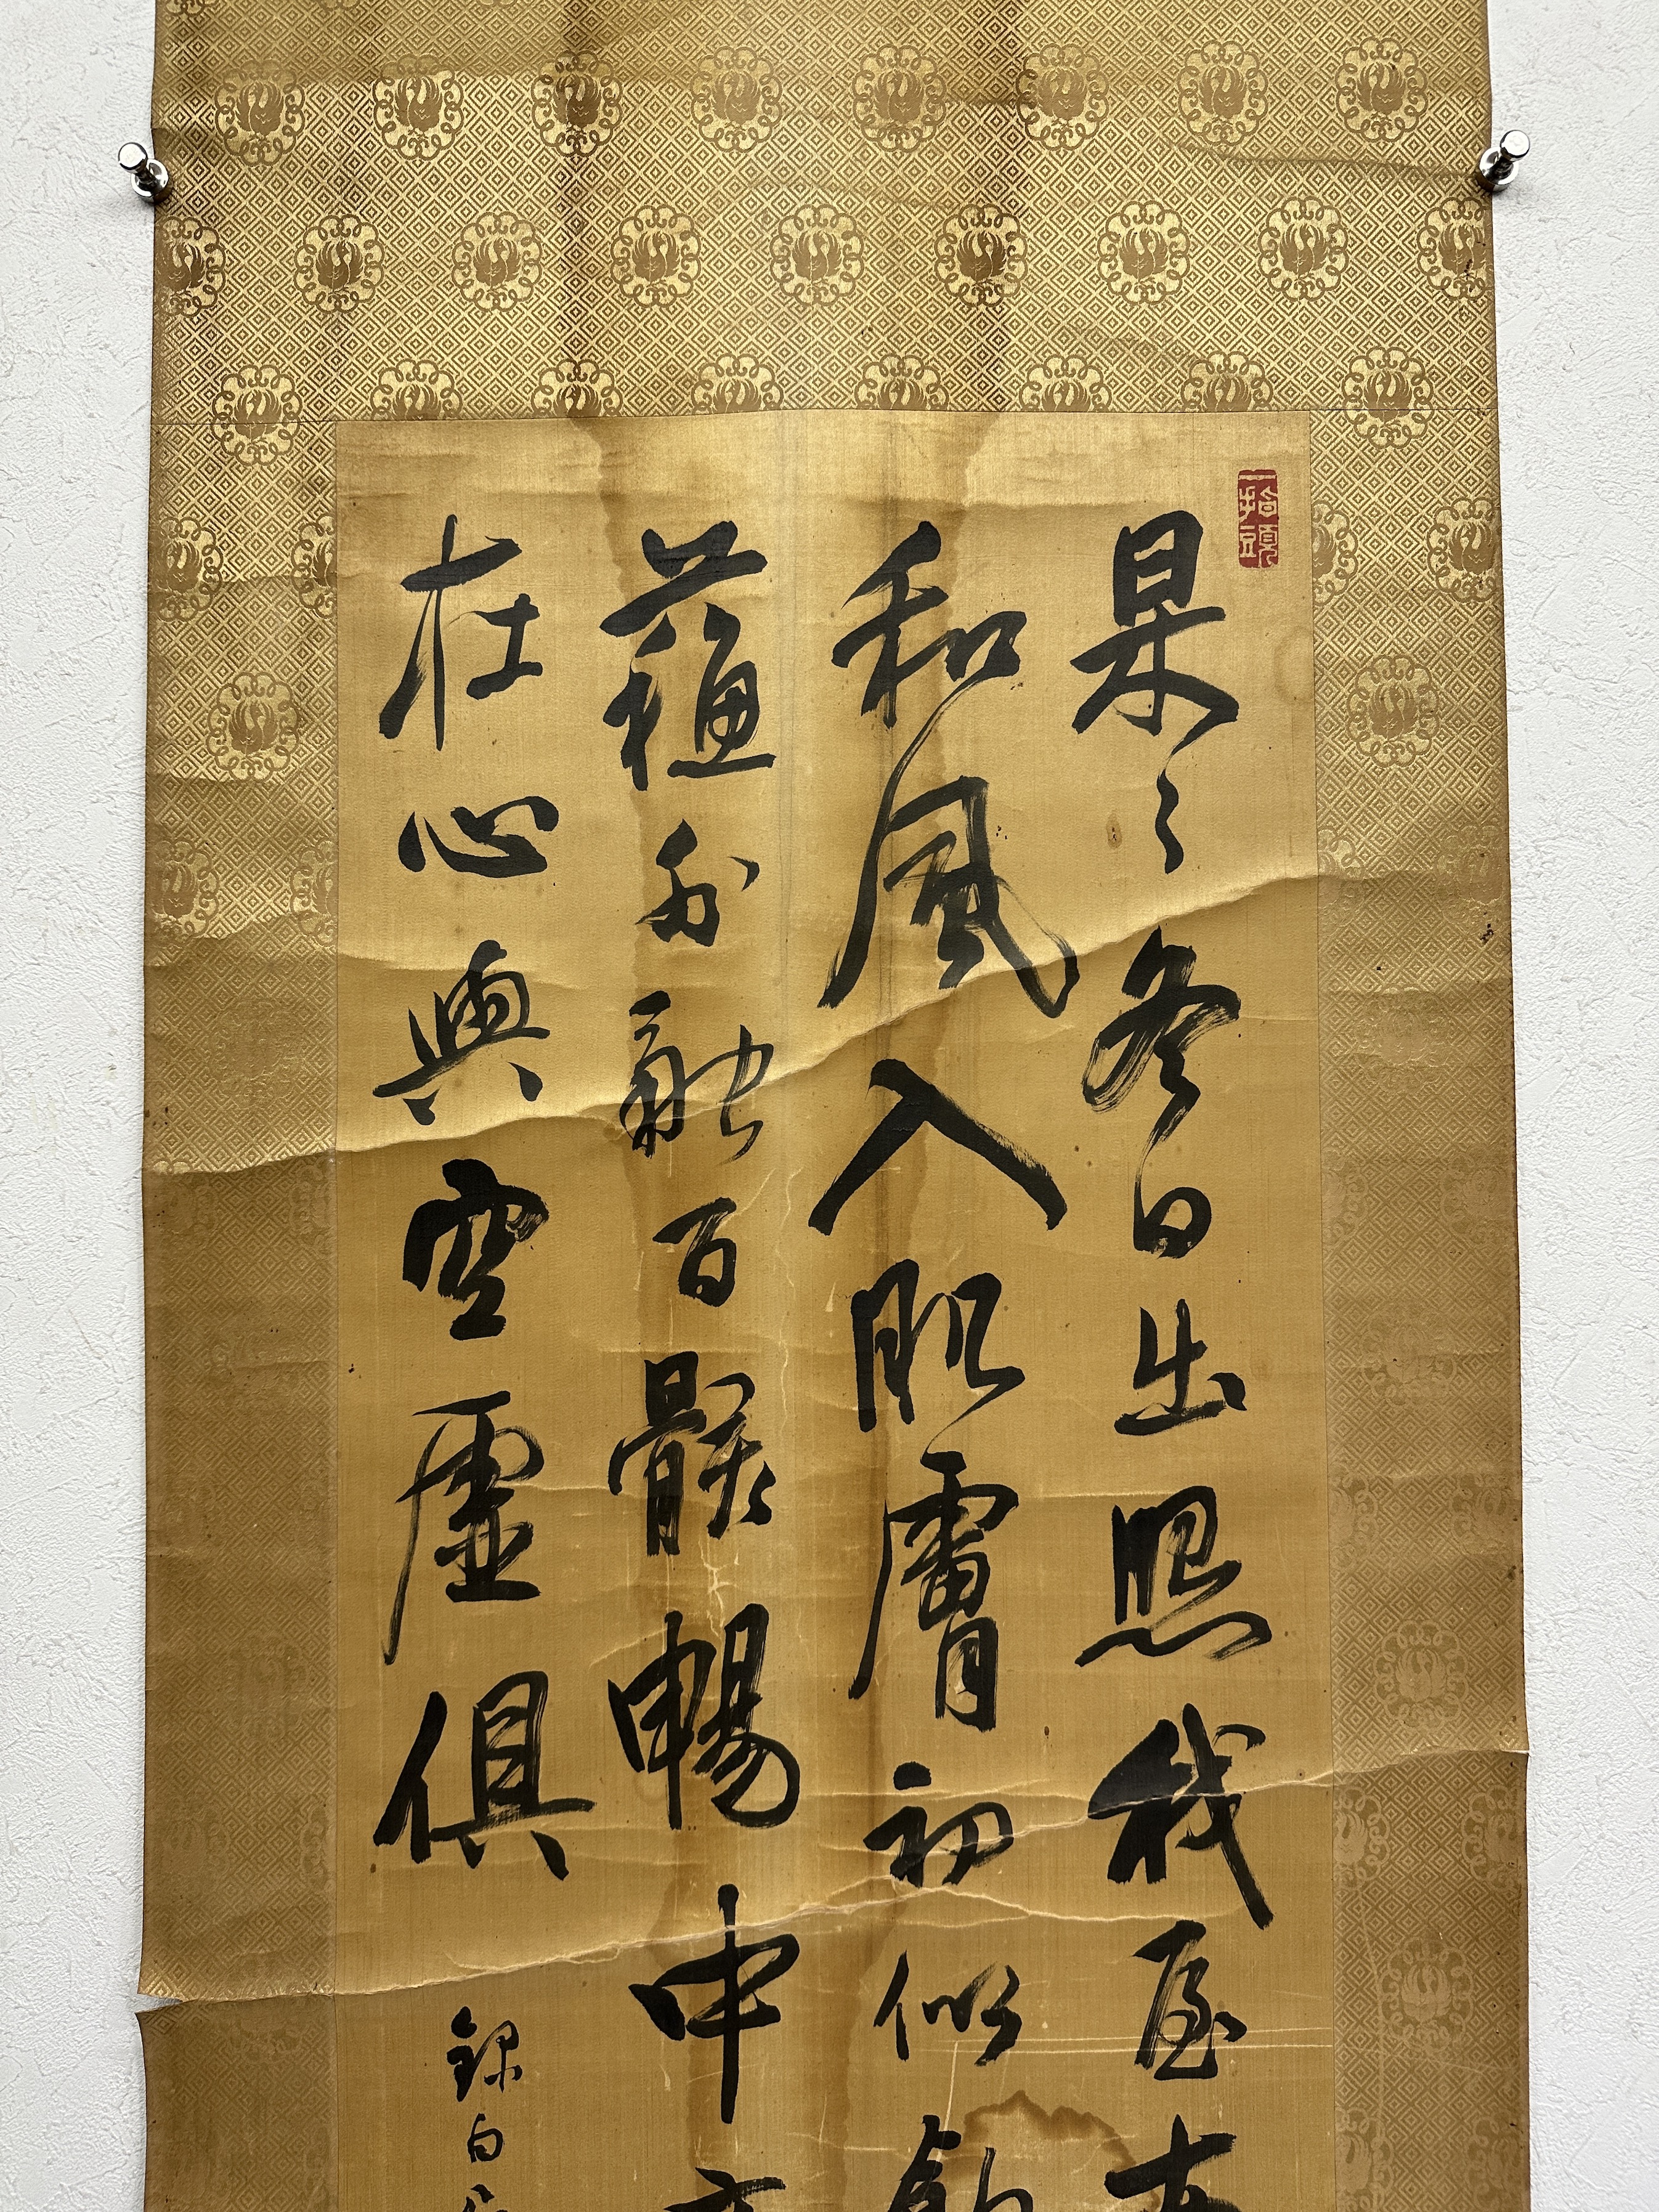 一指頭
杲々冬日出照我屋南
和風入肌膚初似飲
蘓外融百骸暢中
在心與空虛俱
録白